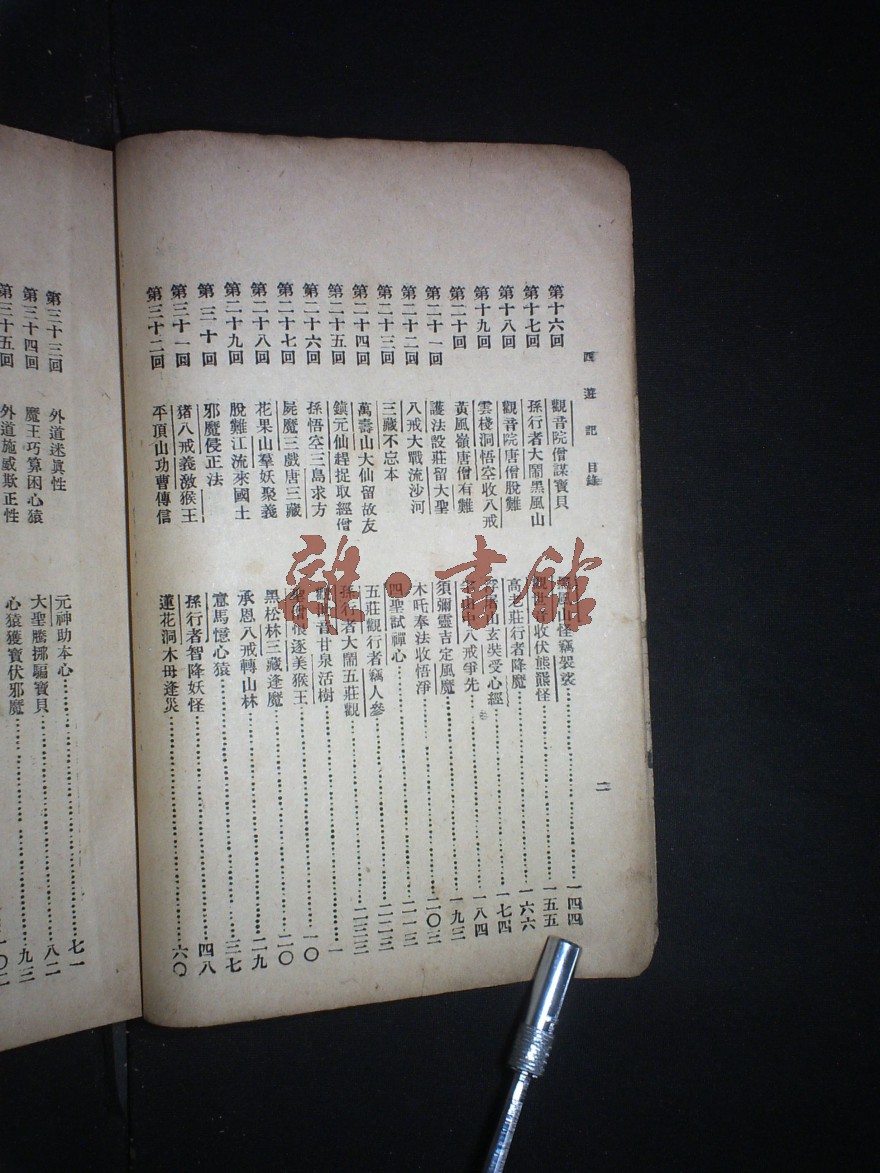 西遊記 目錄
二
第十六回 觀音院僧謀寶貝 黑風山怪竊袈裟 一四四
第十七回 孫行者大鬧黑風山 觀世音收伏熊羆怪 一五五
第十八回 觀音院唐僧脫難 高老莊行者降魔 一六六
第十九回 雲棧洞悟空收八戒 浮屠山玄奘受心經 一七四
第二十回 黃風嶺唐僧有難 半山中八戒爭先 一八四
第二十一回 護法設莊留大聖 須彌靈吉定風魔 一九三
第二十二回 八戒大戰流沙河 木吒奉法收悟淨 二〇二
第二十三回 三藏不忘本 四聖試禪心 二一三
第二十四回 萬壽山大仙留故友 五莊觀行者竊人參 二二三
第二十五回 鎮元仙趕捉取經僧 孫行者大鬧五莊觀 二三三
第二十六回 孫悟空三島求方 觀世音甘泉活樹 一
第二十七回 屍魔三戲唐三藏 聖僧恨逐美猴王 一〇
第二十八回 花果山羣妖聚義 黑松林三藏逢魔 二〇
第二十九回 脫難江流來國土 承恩八戒轉山林 二九
第三十回 邪魔侵正法 意馬憶心猿 三七
第三十一回 猪八戒義激猴王 孫行者智降妖怪 四八
第三十二回 平頂山功曹傳信 蓮花洞木母逢災 六〇
第三十三回 外道迷眞性 元神助本心 七一
第三十四回 魔王巧算困心猿 大聖騰挪騙寶貝 八二
第三十五回 外道施威欺正性 心猿獲寶伏邪魔 九三
一〇二
雜·書館